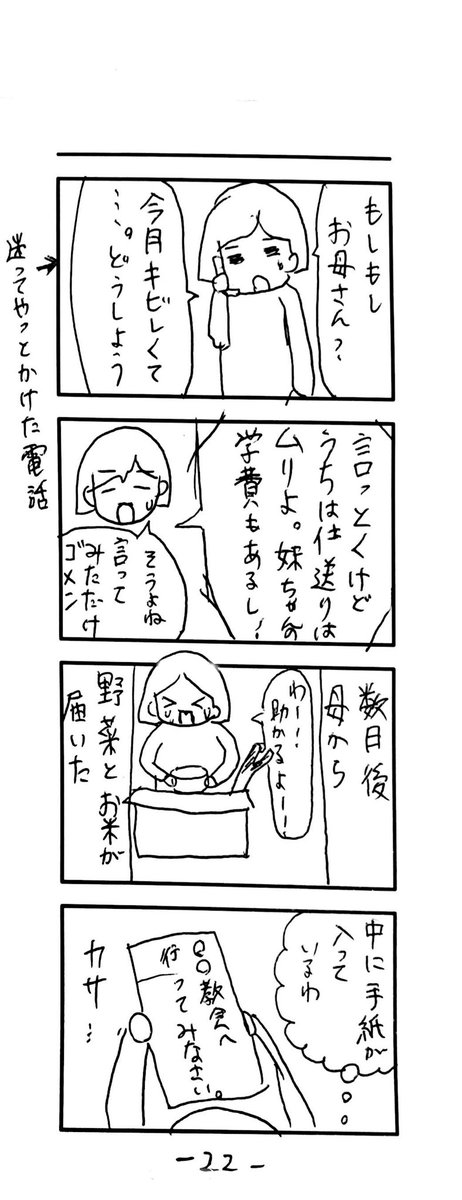 もしもし
お母さん?
今月キビしくて
…。どうしよう
迷ってやっとかけた電話
言っとくけど
うちは仕送りは
ムリよ。妹ちゃんの
学費もあるし!
そうよね
言って
みただけ
ゴメン
数日後
母から
わー!
助かるよー!!
野菜とお米が
届いた
中に手紙が
入って
いるわ
○○教会へ
行ってみなさい。
カサ…
-22-